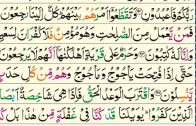 فَاعْبُدُونِ وَتَقَطَّعُوٓا۟ أَمْرَهُم بَيْنَهُمْ كُلٌّ إِلَيْنَا رَٰجِعُونَ
فَمَن يَعْمَلْ مِنَ الصَّٰلِحَٰتِ وَهُوَ مُؤْمِنٌ فَلَا
إِنَّا لَهُۥ كَٰتِبُونَ وَحَرَٰمٌ عَلَىٰ قَرْيَةٍ أَهْلَكْنَٰهَآ أَنَّهُمْ لَا يَرْجِعُونَ
حَتَّىٰٓ إِذَا فُتِحَتْ يَأْجُوجُ وَمَأْجُوجُ وَهُم مِّن كُلِّ حَدَبٍ
يَنسِلُونَ وَاقْتَرَبَ الْوَعْدُ الْحَقُّ فَإِذَا هِيَ شَٰخِصَةٌ
الَّذِينَ كَفَرُوا۟ يَٰوَيْلَنَا قَدْ كُنَّا فِي غَفْلَةٍ مِّنْ هَٰذَا